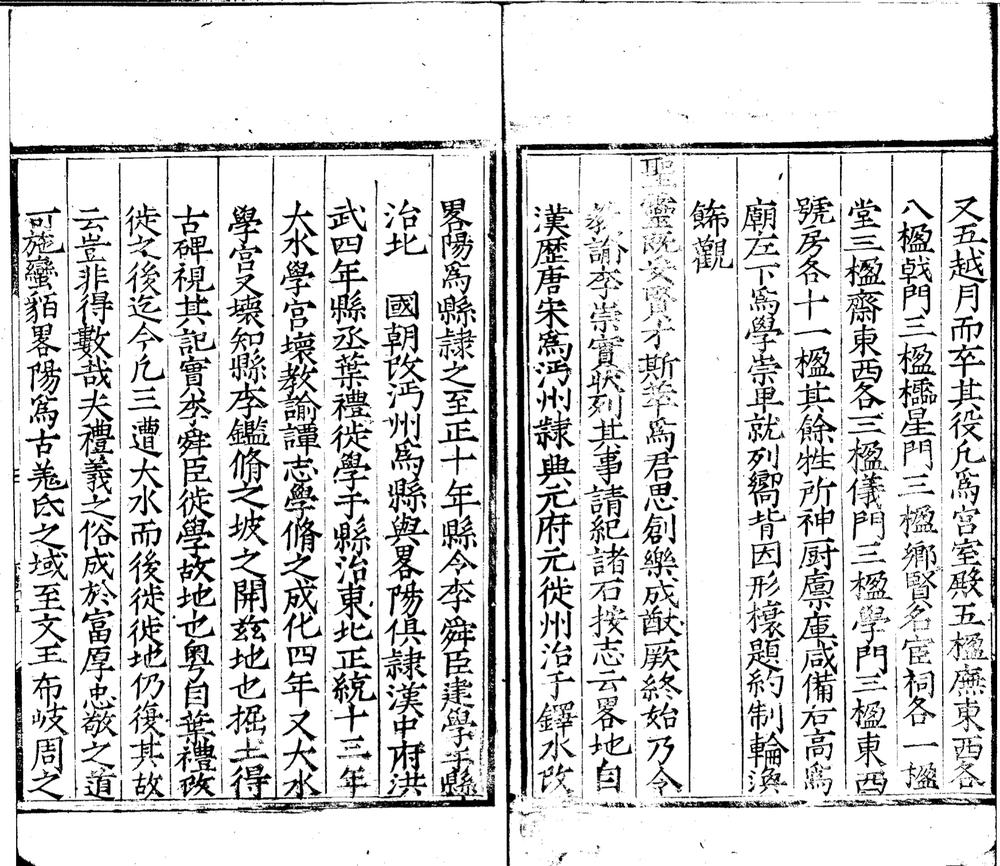 又五越月而卒其役凡爲宫室殿五楹廡東西各
八楹戟門三楹櫺星門三楹鄉賢名宦祠各一楹
堂三楹齋東西各三楹儀門三楹學門三楹東西
號房各十一楹其餘牲所神厨廪庫咸備右高爲
廟左下爲學崇卑就列嚮背因形榱題約制輪渙
餙觀
聖靈旣妥賢才斯萃爲君思創樂成猷厥終始乃令
教諭李崇實狀列其事請紀諸石按志云畧地自
漢歷唐宋爲沔州隸興元府元徙州治于鐸水改
畧陽爲縣隷之至正十年縣令李舜臣建學于縣
治北　國朝改沔州爲縣與畧陽俱隷漢中府洪
武四年縣丞葉禮徙學于縣治東北正統十三年
大水學宫壞教諭譚志學脩之成化四年又大水
學宫又壞知縣李鑑脩之坡之開兹地也掘土得
古碑視其記實李舜臣徙學故地也粤自葉禮改
徙之後迄今凡三遭大水而後徙徙地仍復其故
云豈非得數哉夫禮義之俗成於富厚忠敬之道
可施蠻貊畧陽爲古羗氐之域至文王布岐周之